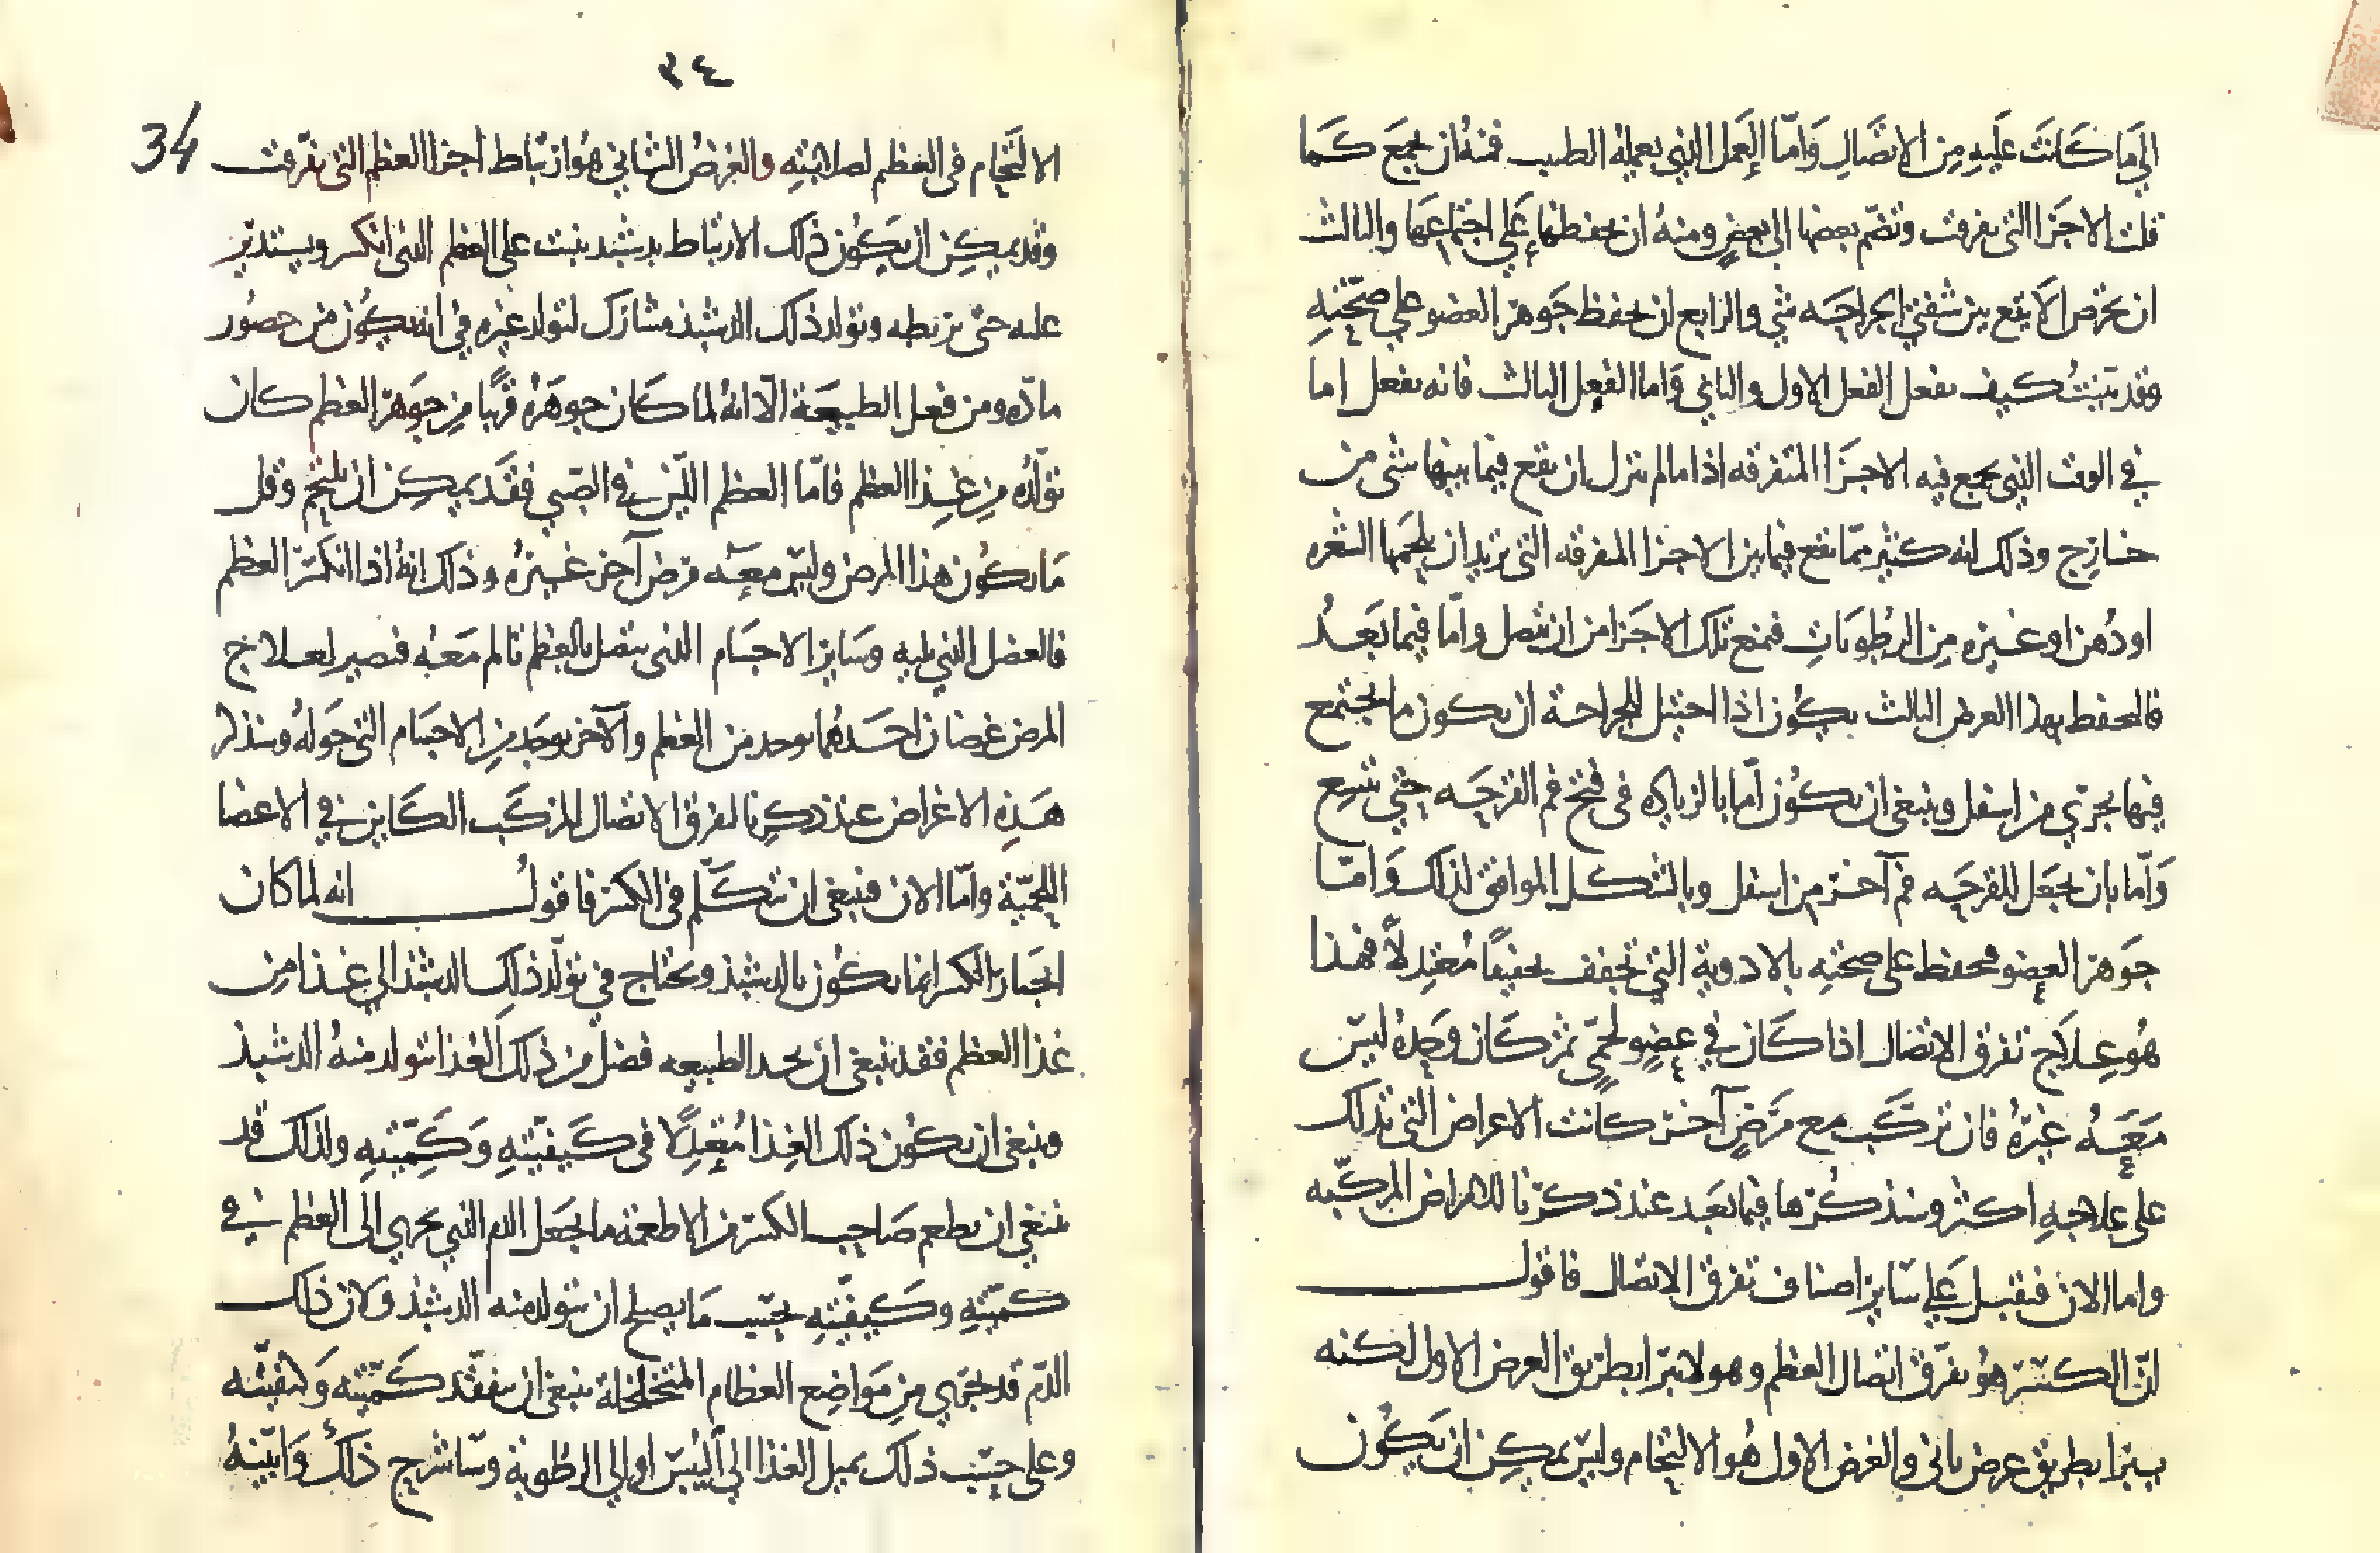 الي ما كانت عليه من الاتصال وامّا العمل الذي يعمله الطبيب فمنه ان يجمع كما
قلت الاجزا التي تفرقت وتضم بعضها الى بعض ومنه ان يحفظها على اجتماعها والثالث
ان يحرص الا يقع بين شفتي الجراحه شي والرابع ان يحفظ جوهر العضو على صحّته
وقد بيّنت كيف تفعل الفعل الاول والثاني واما الفعل الثالث فانه يفعل اما
في الوقت الذي يجمع فيه الاجزا المتفرقه اذا ما لم تزل ان يقع فيما بينها شي من
خارج وذلك انه كثير مما يقع فيما بين الاجزا المتفرقه التي تريد ان يلحمها الشعره
او دهن او غيره من الرطوبات فمنع تلك الاجزا من ان تتصل وامّا فيما بعد
فالحفظ بهذا الغرض الثالث يكون اذا احتيل للجراحة ان يكون ما يجتمع
فيها يجري من اسفل وينبغي ان يكون امّا بالزياده في فتح فم القرحه حتى تتسع
وامّا بان يجعل للقرحه فم آخر من اسفل وبالشكل الموافق لذلك وامّا
جوهر العضو فيحفظ على صحته بالادوية التي تجفف تجفيفًا معتدلًا فهذا
هو علاج تفرق الاتصال اذا كان في عضو لحمي ثم كان وحده ليس
معه غيره فان تركب مع مرض آخر كانت الاعراض التي تدلك
على علاجه اكثر وسنذكرها فيما بعد عند ذكرنا للامراض المركّبه
واما الان فنقبل على سائر اصناف تفرق الاتصال فاقول
انّ الكسر هو تفرّق اتصال العظم وهو لا يبرا بطريق الغرض الاول لكنه
يبرا بطريق غرض ثاني والغرض الاول هو الالتحام وليس يمكن ان يكون
٣٤
34
الالتحام في العظم لصلابته والغرض الثاني هو ارتباط اجزا العظم التي تفرّقت
وقد يمكن ان يكون ذلك الارتباط بدشبذ ينبت على العظم الذي انكسر ويستدير
عليه حتى يربطه وتولد ذلك الدشبذ مشارك لتولد غيره في انه يكون من حضور
مادّه ومن فعل الطبيعة الّا انه لما كان جوهره قريبا من جوهر العظم كان
تولّده من غذا العظم فامّا العظم اللّين في الصّبي فقد يمكن ان يلتحم وقل
ما يكون هذا المرض وليس معه مرض آخر غيره وذلك انه اذا انكسر العظم
فالعضل الذي يليه وسائر الاجسام التي تتصل بالعظم تالم معه فتصير لعلاج
المرض غرضان احدهما يوجد من العظم والآخر يوجد من الاجسام التي حوله وسنذكر
هذه الاغراض عند ذكرنا لفرق الاتصال المركّب الكاين في الاعضا
اللحميّة وامّا الان فينبغي ان نتكلّم في الكسر فاقول انه لما كان
انجبار الكسر انما يكون بالدشبذ ويحتاج في تولّد ذلك الدشبذ الي غذا من
غذا العظم فقد ينبغي ان يجد الطبيعه فضل من ذلك الغذا تتولد منه الدشبذ
وينبغي ان يكون ذلك الغذا معتدلًا في كيفيّته وكمّيته ولذلك قد
ينبغي ان يطعم صاحب الكسر من الاطعمة ما يجعل الدم الذي يجري الى العظم في
كميّته وكيفيّته بحسب ما يصلح ان تتولد منه الدشبذ ولان ذلك
الدّم قد يجري من مواضع العظام المتخلخلة ينبغي ان يتفقّد كمّيته وكيفيّته
وعلى حسب ذلك يميل الغذا الي اليبس او الي الرطوبة وساشرح ذلك وابيّنه